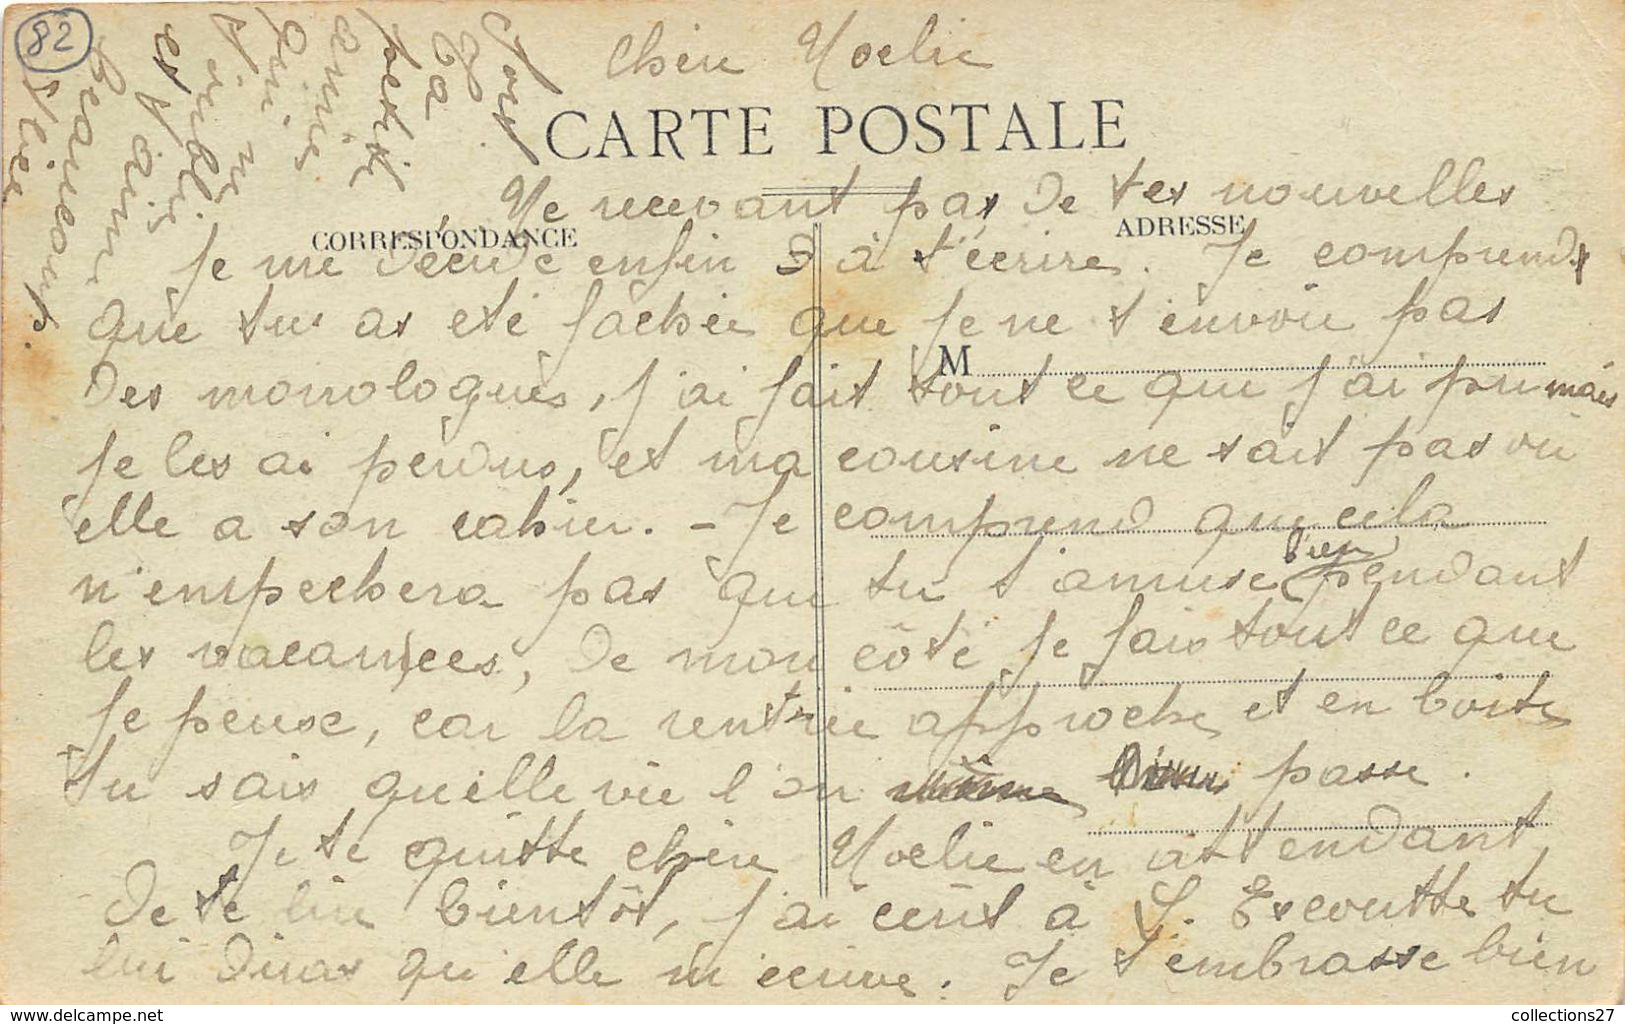 82
Chère Noelie
CARTE POSTALE
Ne recevant pas de tes nouvelles
CORRESPONDANCE
ADRESSE
Je me décide enfin à t'écrire. Je comprends
que tu as été fachée que je ne t'envoie pas
M
des monologues, j'ai fait tout ce que j'ai pu mais
je les ai perdus, et ma cousine ne sait pas où
elle a son cahier. - Je comprend que cela
n'empechera pas que tu t'amuse bien pendant
les vacances, de mon côté je fais tout ce que
je pense, car la rentrée approche et en boite
tu sais quelle vie l'on passe.
Je te quitte chère Noelie en attendant
de te lire bientôt, j'ai écrit à S. Escoutte tu
lui diras qu'elle m'écrive. Je t'embrasse bien
fort
ta
petite
amie
qui ne
t'oublie
et t'aime
beaucoup.
collections27